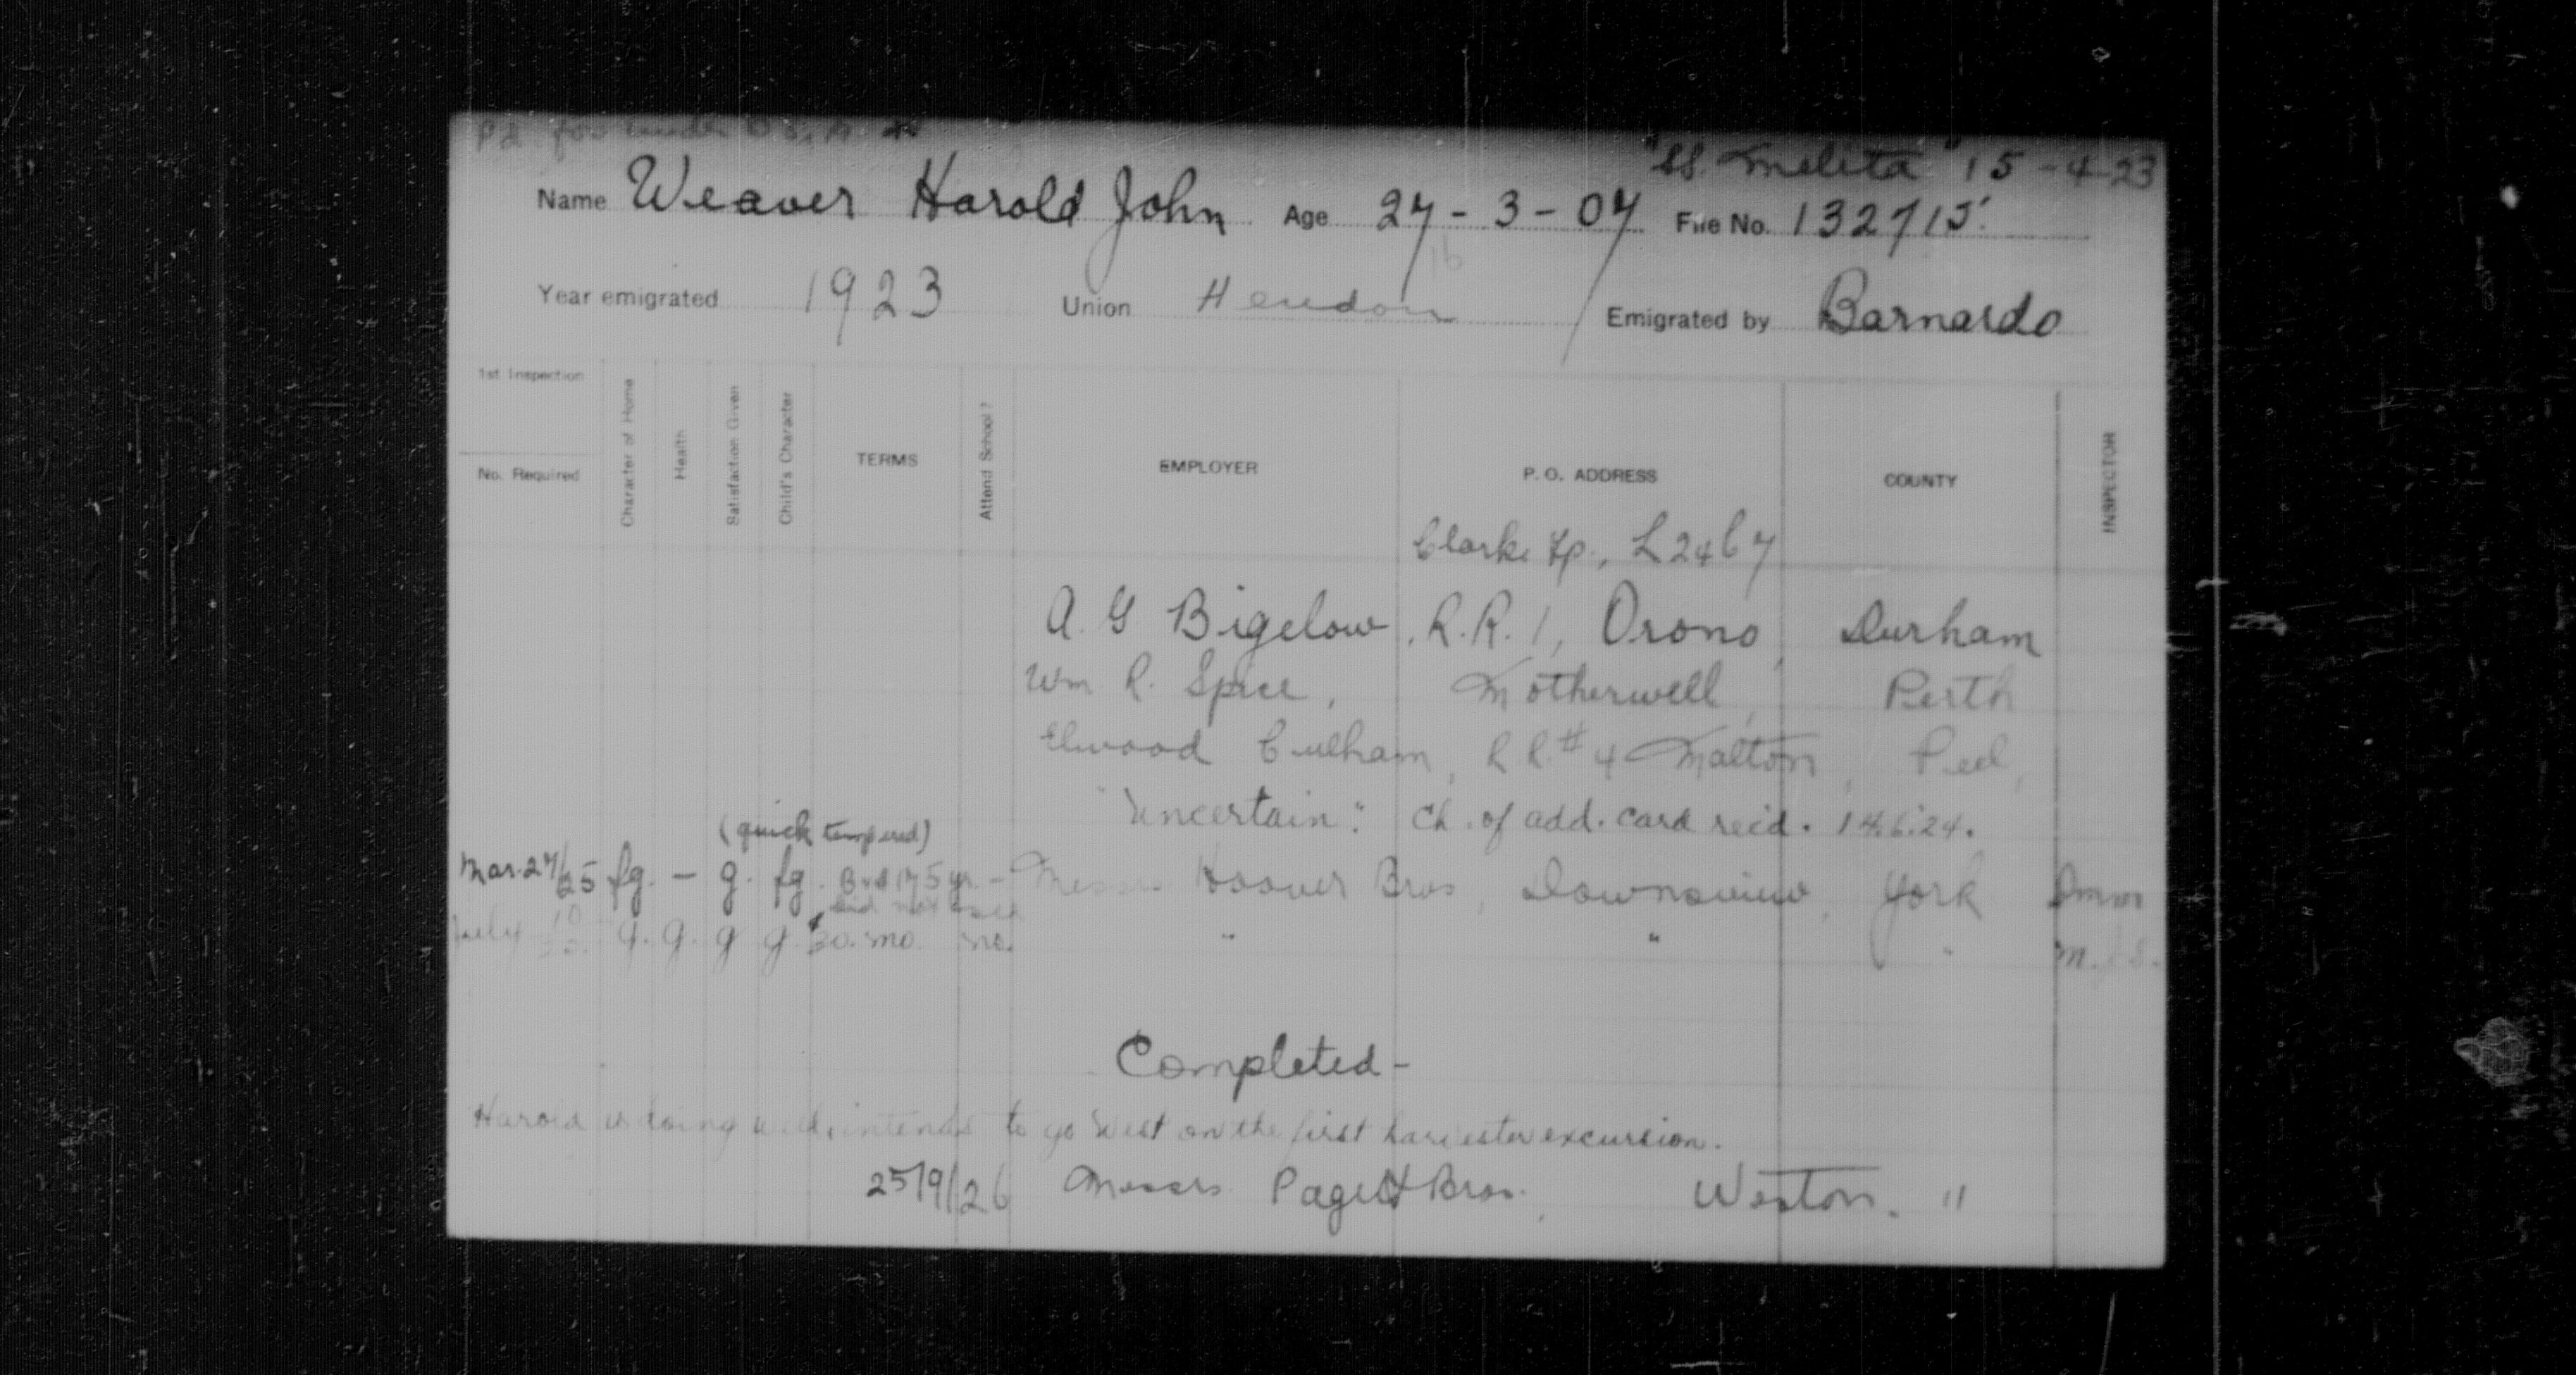 Pd for under
"SS. Melita" 15-4-23
Name Weaver Harold John Age 27-3-07 File No. 132715
16
Year emigrated 1923 Union Hendon Emigrated by Barnardo
1st Inspection
No. Required
Character of Home
Health
Satisfaction Given
Child's Character
TERMS
Attend School?
EMPLOYER
P. O. ADDRESS
COUNTY
INSPECTOR
Clarke Tp., L24 C7
A. G Bigelow, R.R. 1, Orono, Durham
Wm R. Spice, Motherwell, Perth
Elwood Culham, R R. #4 Malton, Peel,
"Uncertain". Ch. of add. card recd. 14.6.24.
(quick tempered)
Mar. 27/25 fg. - g. fg. 175 yr. - Messrs Hoover Bros, Downsview, York
did not see
July 10 g. g. g g. 30. mo. no. " " "
Completed-
Harold is doing well, intends to go West on the first harvester excursion.
25/9/26 Messrs. Pagett Bros. Weston. "